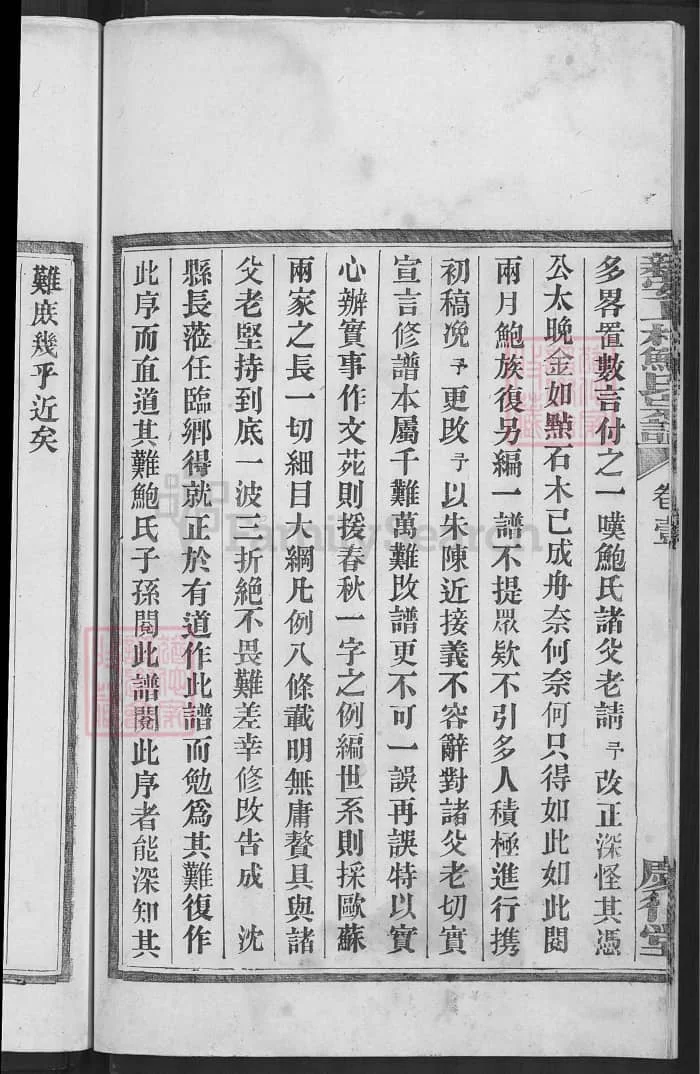 多畧置數言付之一嘆鮑氏諸父老請予改正深怪其憑
公太晚金如點石木已成舟奈何奈何只得如此如此閱
兩月鮑族復另編一譜不提眾欵不引多人積極進行携
初稿浼予更改予以朱陳近接義不容辭對諸父老切實
宣言修譜本屬千難萬難改譜更不可一誤再誤特以實
心辦實事作文苑則援春秋一字之例編世系則採歐蘇
兩家之長一切細目大綱凡例八條載明無庸贅具與諸
父老堅持到底一波三折絕不畏難差幸修改告成 沈
縣長蒞任臨鄉得就正於有道作此譜而勉爲其難復作
此序而直道其難鮑氏子孫閱此譜閱此序者能深知其
難庶幾乎近矣
卷壹
FamilySearch